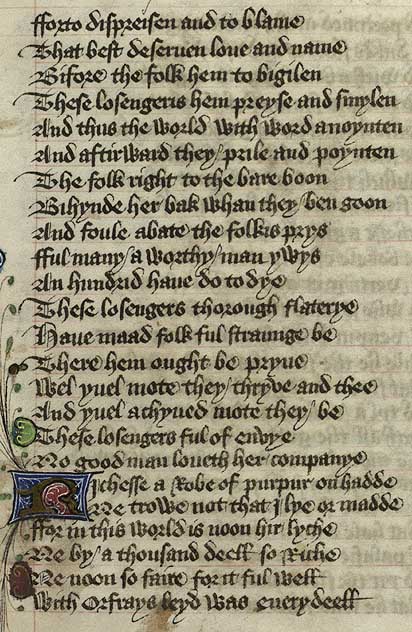 fforto dispreisen and to blame
That best deseruen loue and name
Bifore the folk hem to bigilen
These losengeris hem preyse and smylen
And thus the world with word anoynten
And aftirward they / prile and poynten
The folk right to the bare boon
Bihynde her bak whan they / ben goon
And foule abate the folkis prys
fful many / a worthy / man ywys
An hundrid have do to dye
These losengers thorough flaterye
Have maad folk ful straunge be
There hem ought be pryue
Wel yuel mote they / thryve and thee
And yuel achyued mote they / be
These losengers ful of envye
No good man loueth her companye
Richesse a Robe of purpur on hadde
Ne trowe not that I lye or madde
ffor in this world is noon hir lyche
Ne by / a thousand deell so Riche
Ne noon so faire for it ful well
With Orfrays leyd was euerydeell